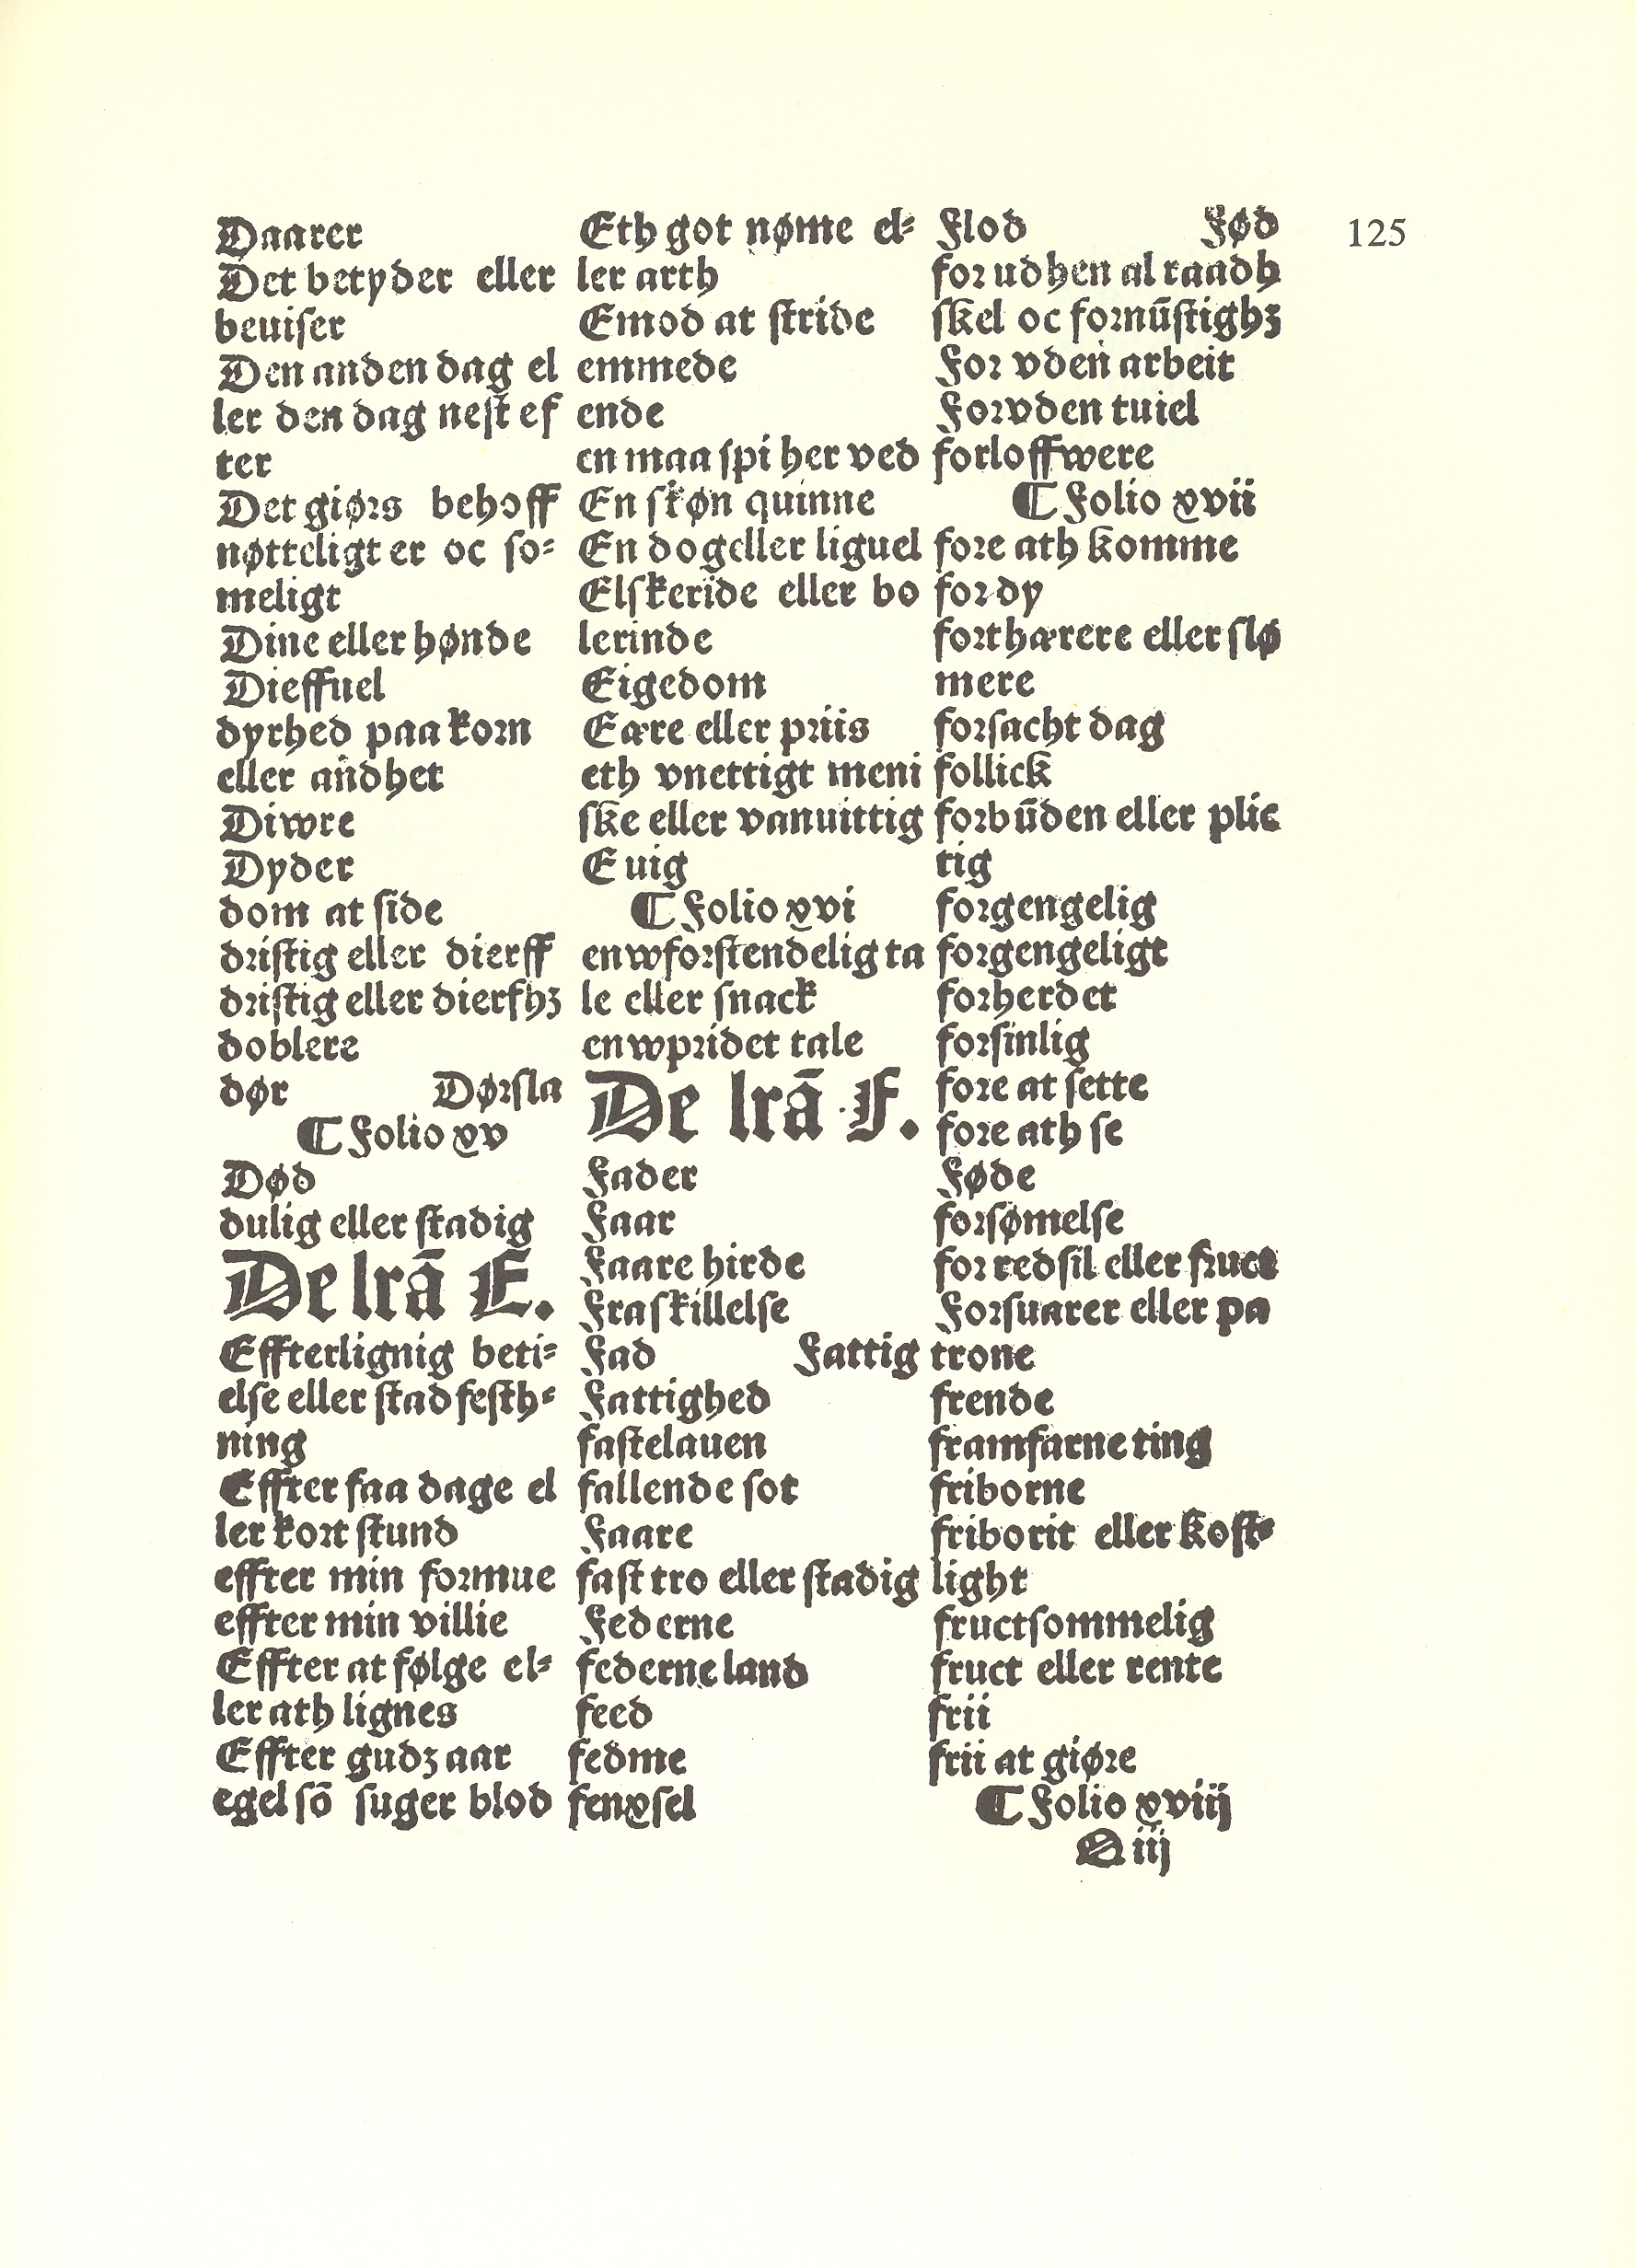 Daarer
Det betyder eller
beuiser
Den anden dag el
ler den dag nest ef
ter
Det giørs behoff
nøtteligt er oc so⸗
meligt
Dine eller hønde
Dieffuel
dyrhed paa korn
eller andhet
Diwre
Dyder
dom at side
dristig eller dierff
dristig eller dierfhꝫ
doblere
dør Dørsla
¶ Folio xv
Død
dulig eller stadig
De lrā E.
Effterlignig beti⸗
else eller stadfesth⸗
ning
Effter faa dage el
ler kort stund
effter min formue
effter min villie
Effter at følge el⸗
ler ath lignes
Effter gudꝫ aar
egel sō suger blod
Eth got nøme el⸗
ler arth
Emod at stride
emmede
ende
en maa spi her ved
En skøn quinne
En dog eller liguel
Elskeride eller bo
lerinde
Eigedom
Eære eller priis
eth vnettigt meni
ske eller vanuittig
Euig
¶ Folio xvi
en wforstendelig ta
le eller snack
en wpridet tale
De lrā F.
Fader
Faar
Faare hirde
Fraskillelse
Fad Fattig
Fattighed
fastelauen
fallende sot
Faare
fast tro eller stadig
Federne
federne land
feed
fedme
fenxsel
Flod Fød 125
for udhen al raadh
skel oc fornūstighꝫ
For vden arbeit
Forvden tuiel
forloffwere
¶ Folio xvii
fore ath komme
for dy
forthærere eller slø
mere
forsacht dag
follick
forbūden eller plic
tig
forgengelig
forgengeligt
forherdet
forsinlig
fore at sette
fore ath se
Føde
forsømelse
for redsil eller fruct
Forsuarer eller pa
trone
frende
framfarne ting
friborne
friborit eller kost⸗
light
fructsommelig
fruct eller rente
frii
frii at giøre
¶ Folio xviij
Q iij